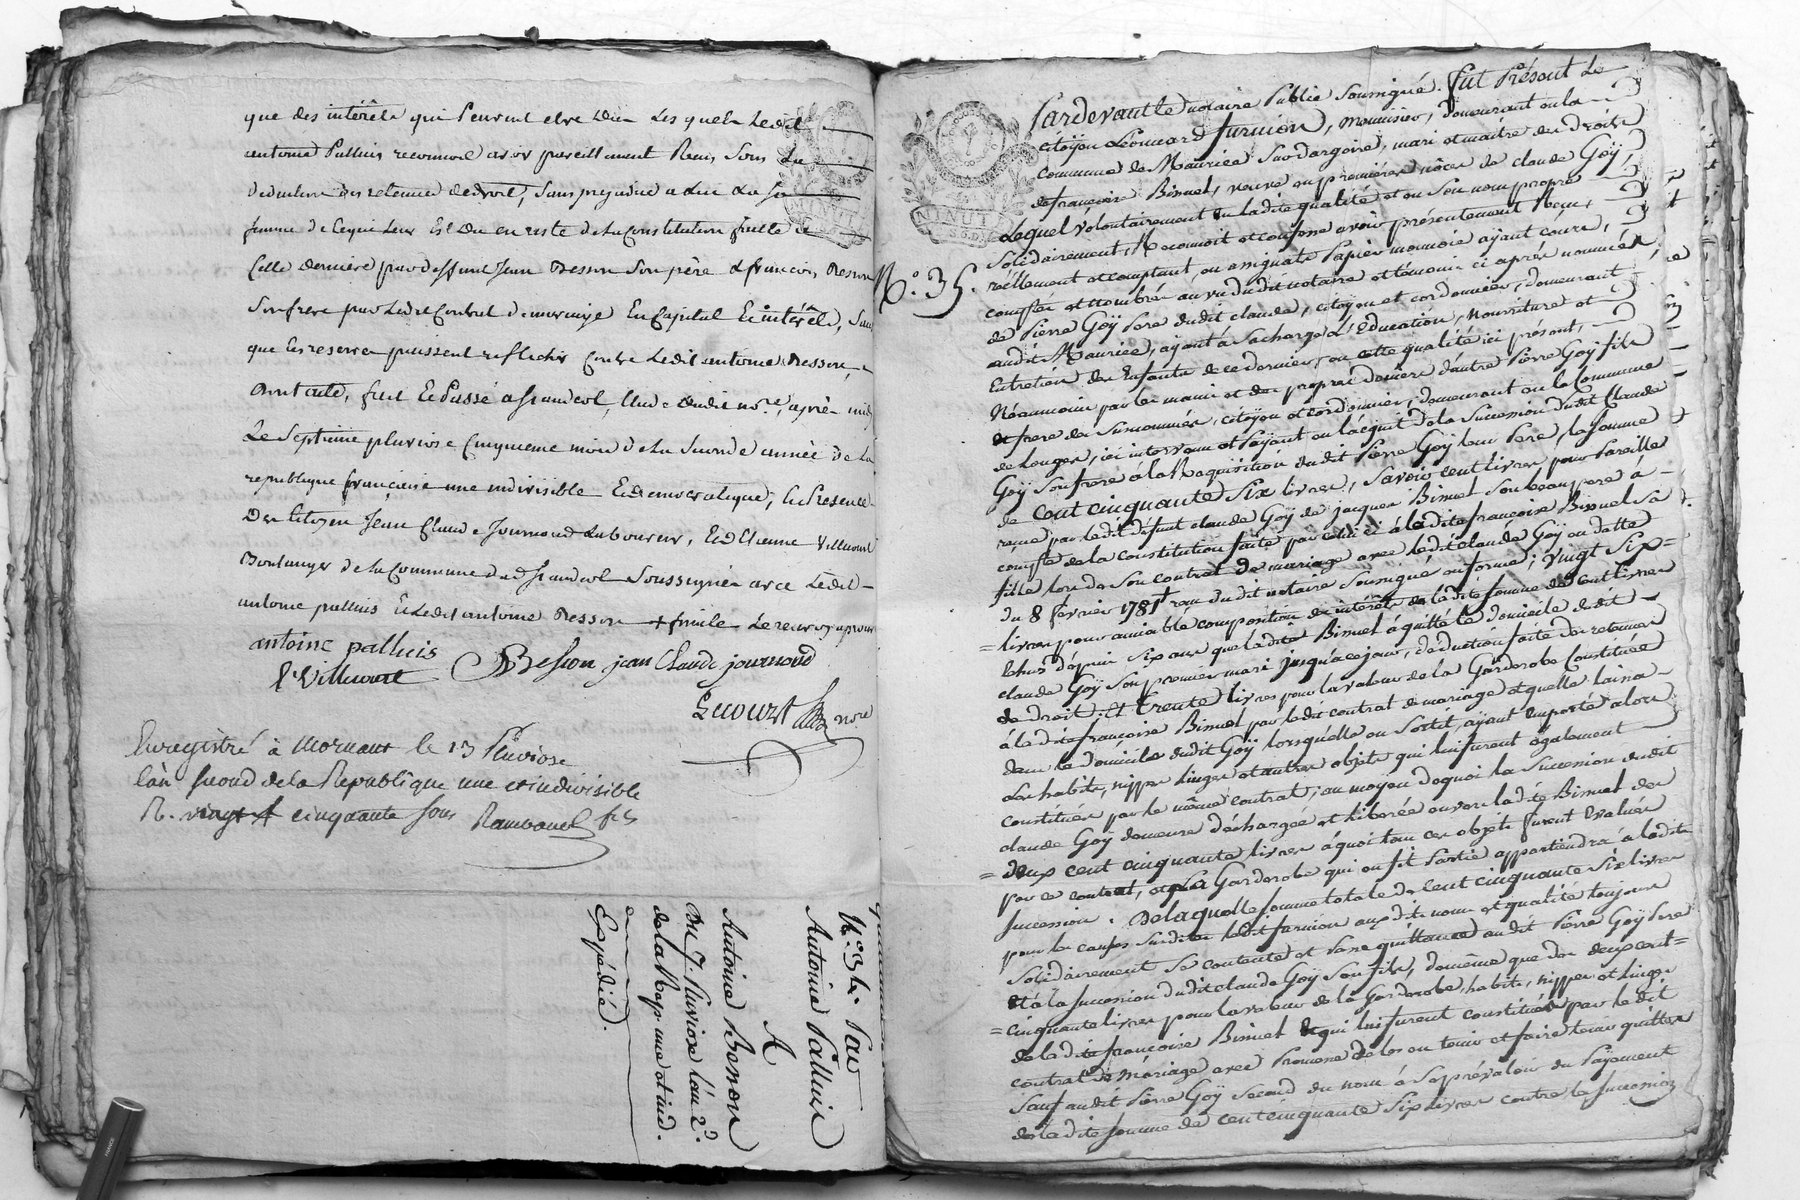 que des intérêts qui Peuvent etre Dus Les quels Ledit
antoine Palluis reconnoit avoir pareillement Recu, Sous La
deduction des retenue de droit, Sans prejudice a Lui La
femme de Ce qui Leur Est Du en reste de La Constitution faitte a
Celle derniere par deffunt Jean Besson Son père & françois Besson
Son frere par Ledit Contrat de mariage En Capital Et intérêts, Sans
que Les reserves puissent reflechir Contre Ledit antoine Besson,
Dont acte, fait Et Passé a St andeol, Etude dudit nore, après midy
Le Septieme pluviose Cinquieme mois de La Seconde année de La
republique françoise une indivisible Et democratique, En Presence
Des Citoyen Jean Claude Journoud Laboureur, Et Etienne Villecourt
Boulanger de La Commune dud St andeol Soussignés avec Ledit
antoine palluis Et Ledit antoine Besson
antoine palluis
Besson jean Claude journoud
E Villecourt
nore
Enregistré à Mornant le 13 Pluviose
l'an second de la Republique une et indivisible
R. cinquante sous
fils
Par
Antoine Palluis
A
Antoine Besson
Du 7. Pluviose l'an 2d.
de la Rep. une et ind.
Expédié.
MINUT
N.° 35.
MINUT
Pardevant le notaire Public soussigné. fut Présent Le
Citöyen Léonard furnion, Menuisier, demeurant en la
commune de Maurice Sur dargoire, mari et maitre des Droits
de françoise Bissuel, veuve en premières nôces de claude Goÿ,
Lequel volontairement en ladite qualité et en son nom propre
Solidairement, Reconnoit et confesse avoir présentement Recu,
réellement et comptant, en assignats Papier monnoie aÿant cours,
comptés et nombrés au vu dudit notaire et témoins ci après nommés,
de Pierre Goÿ Pere dudit claude, citoÿen et cordonnier, demeurant
audit Maurice, aÿant à Sa charge L'Education, Nourriture et
Entretien des Enfants de ce dernier, en cette qualité ici présent,
Néanmoins par les mains et des propres deniers d'autre Pierre Goÿ fils
& frere des Susnommés, citoÿen et cordonnier, demeurant en la Commune
de Longes, ici intervenu et Paÿant en l'acquit de la Succession dudit Claude
Goÿ Son frere à la Requisition dudit Pierre Goÿ leur Pere, la Somme
de Cent cinquante Six livres, Savoir cent livres pour Pareille
recue par ledit défunt claude Goÿ de jacques Bissuel Son beaupere à
compte de la Constitution faite par celui ci à ladite françoise Bissuel Sa
fille lors de Son contrat de mariage avec ledit Claude Goÿ en datte
du 8 février 1781 recu dudit notaire Soussigné en forme; vingt Six
livres pour amiable composition des intérêts de ladite somme de cent livres
Echus dépuis Six ans que ladite Bissuel a quitté le domicile dudit
claude Goÿ Son premier mari jusqu'à ce jour, déduction faite des retenues
de Droit; Et trente livres pour la valeur de la Garderobe Constituée
à ladite françoise Bissuel par ledit contrat de mariage et quelle laissa
dans le domicile dudit Goÿ lorsqu'elle en Sortit aÿant Emporté alors
Les habits, nippes Linges et autres objets qui lui furent également
constitués par le même contrat, au moyen de quoi la Succession dudit
claude Goÿ demeure déchargée et libérée envers ladite Bissuel des
deux cent cinquante livres à quoi tous ces objets furent Evalués
par ce contrat, et la Garderobe qui en fit Partie appartiendra à ladite
Succession. Delaquelle Somme totale de Cent cinquante Six livres
pour les causes Susdites ledit furnion auxdits noms et qualité toujours
Solidairement Se contente et Passe quittance audit Pierre Goÿ Pere
et à la Succession dudit claude Goÿ Son fils, de même que des deux cent
cinquante livres pour la valeur de la Garderobe, habits, nippes et linges
de ladite françoise Bissuel & qui lui furent constitués par ledit
contrat de Mariage avec Promesse de les en tenir et faire tenir quittes
Sauf audit Pierre Goÿ Second du nom à Se prévaloir du Payement
de ladite Somme de Cent cinquante Six livres contre la Succession